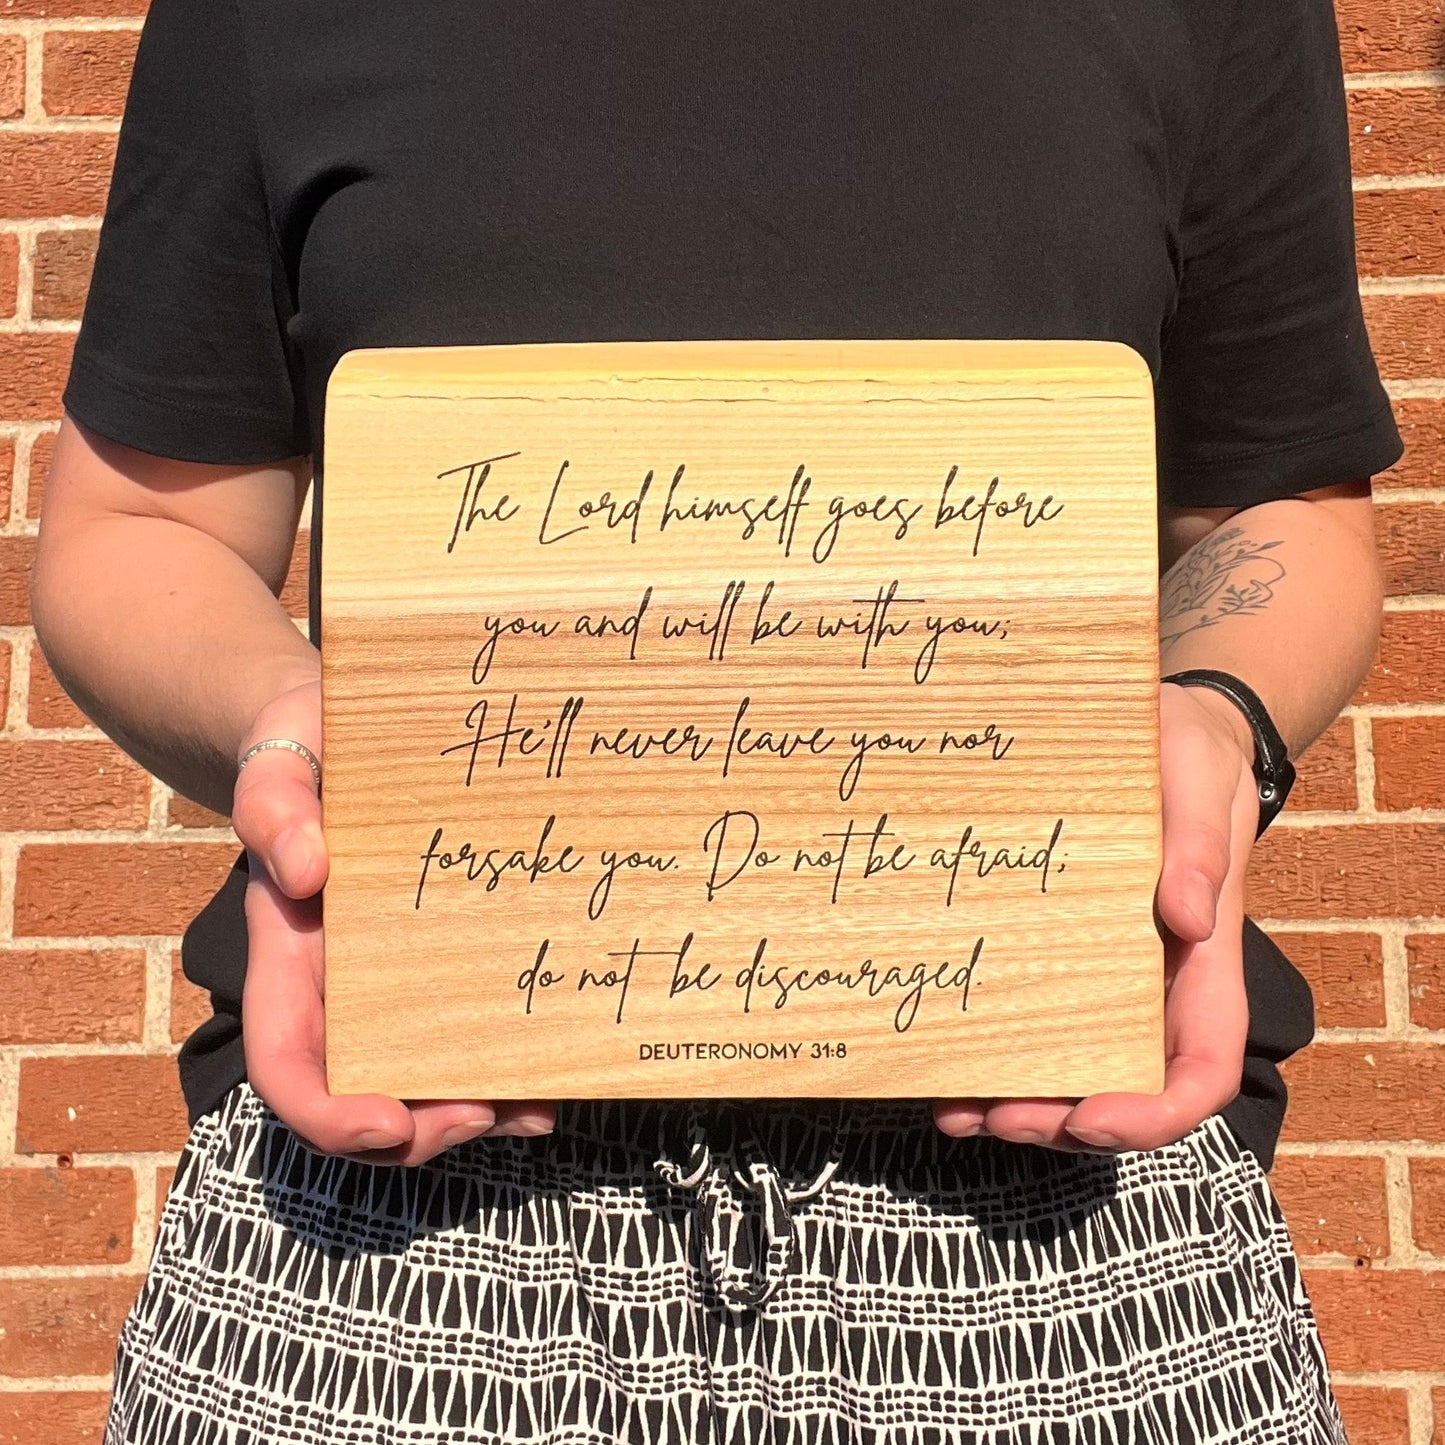 The Lord himself goes before
you and will be with you;
He'll never leave you nor
forsake you. Do not be afraid;
do not be discouraged.
DEUTERONOMY 31:8